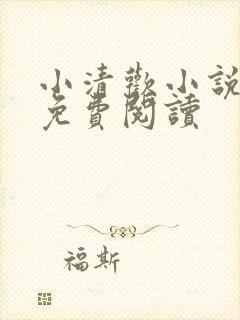 小清歡小說
免費閱讀
福斯